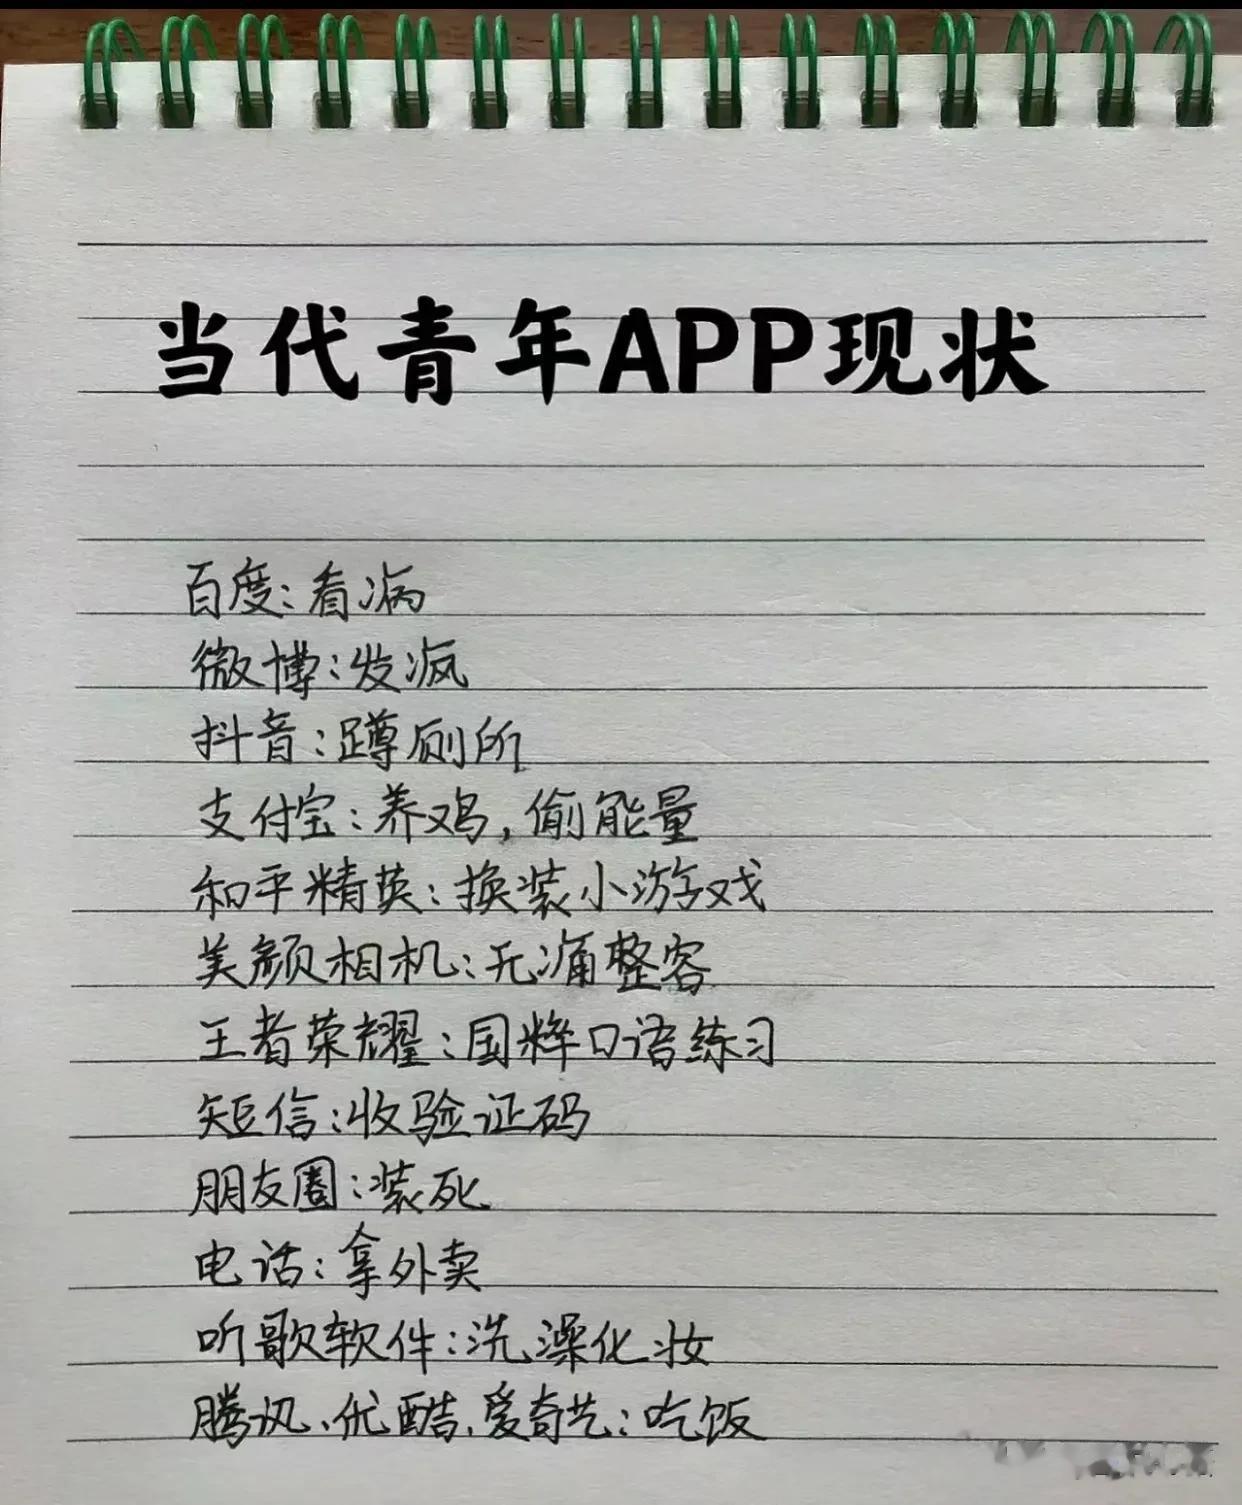 当代青年APP现状
百度：看病
微博：发疯
抖音：蹲厕所
支付宝：养鸡，偷能量
和平精英：换装小游戏
美颜相机：无痛整容
王者荣耀：国粹口语练习
短信：收验证码
朋友圈：装死
电话：拿外卖
听歌软件：洗澡化妆
腾讯、优酷、爱奇艺：吃饭